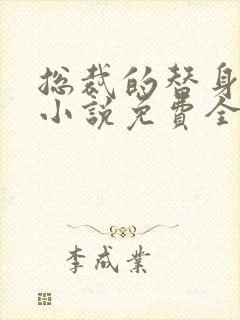 总裁的替身
小说免費全
李成業